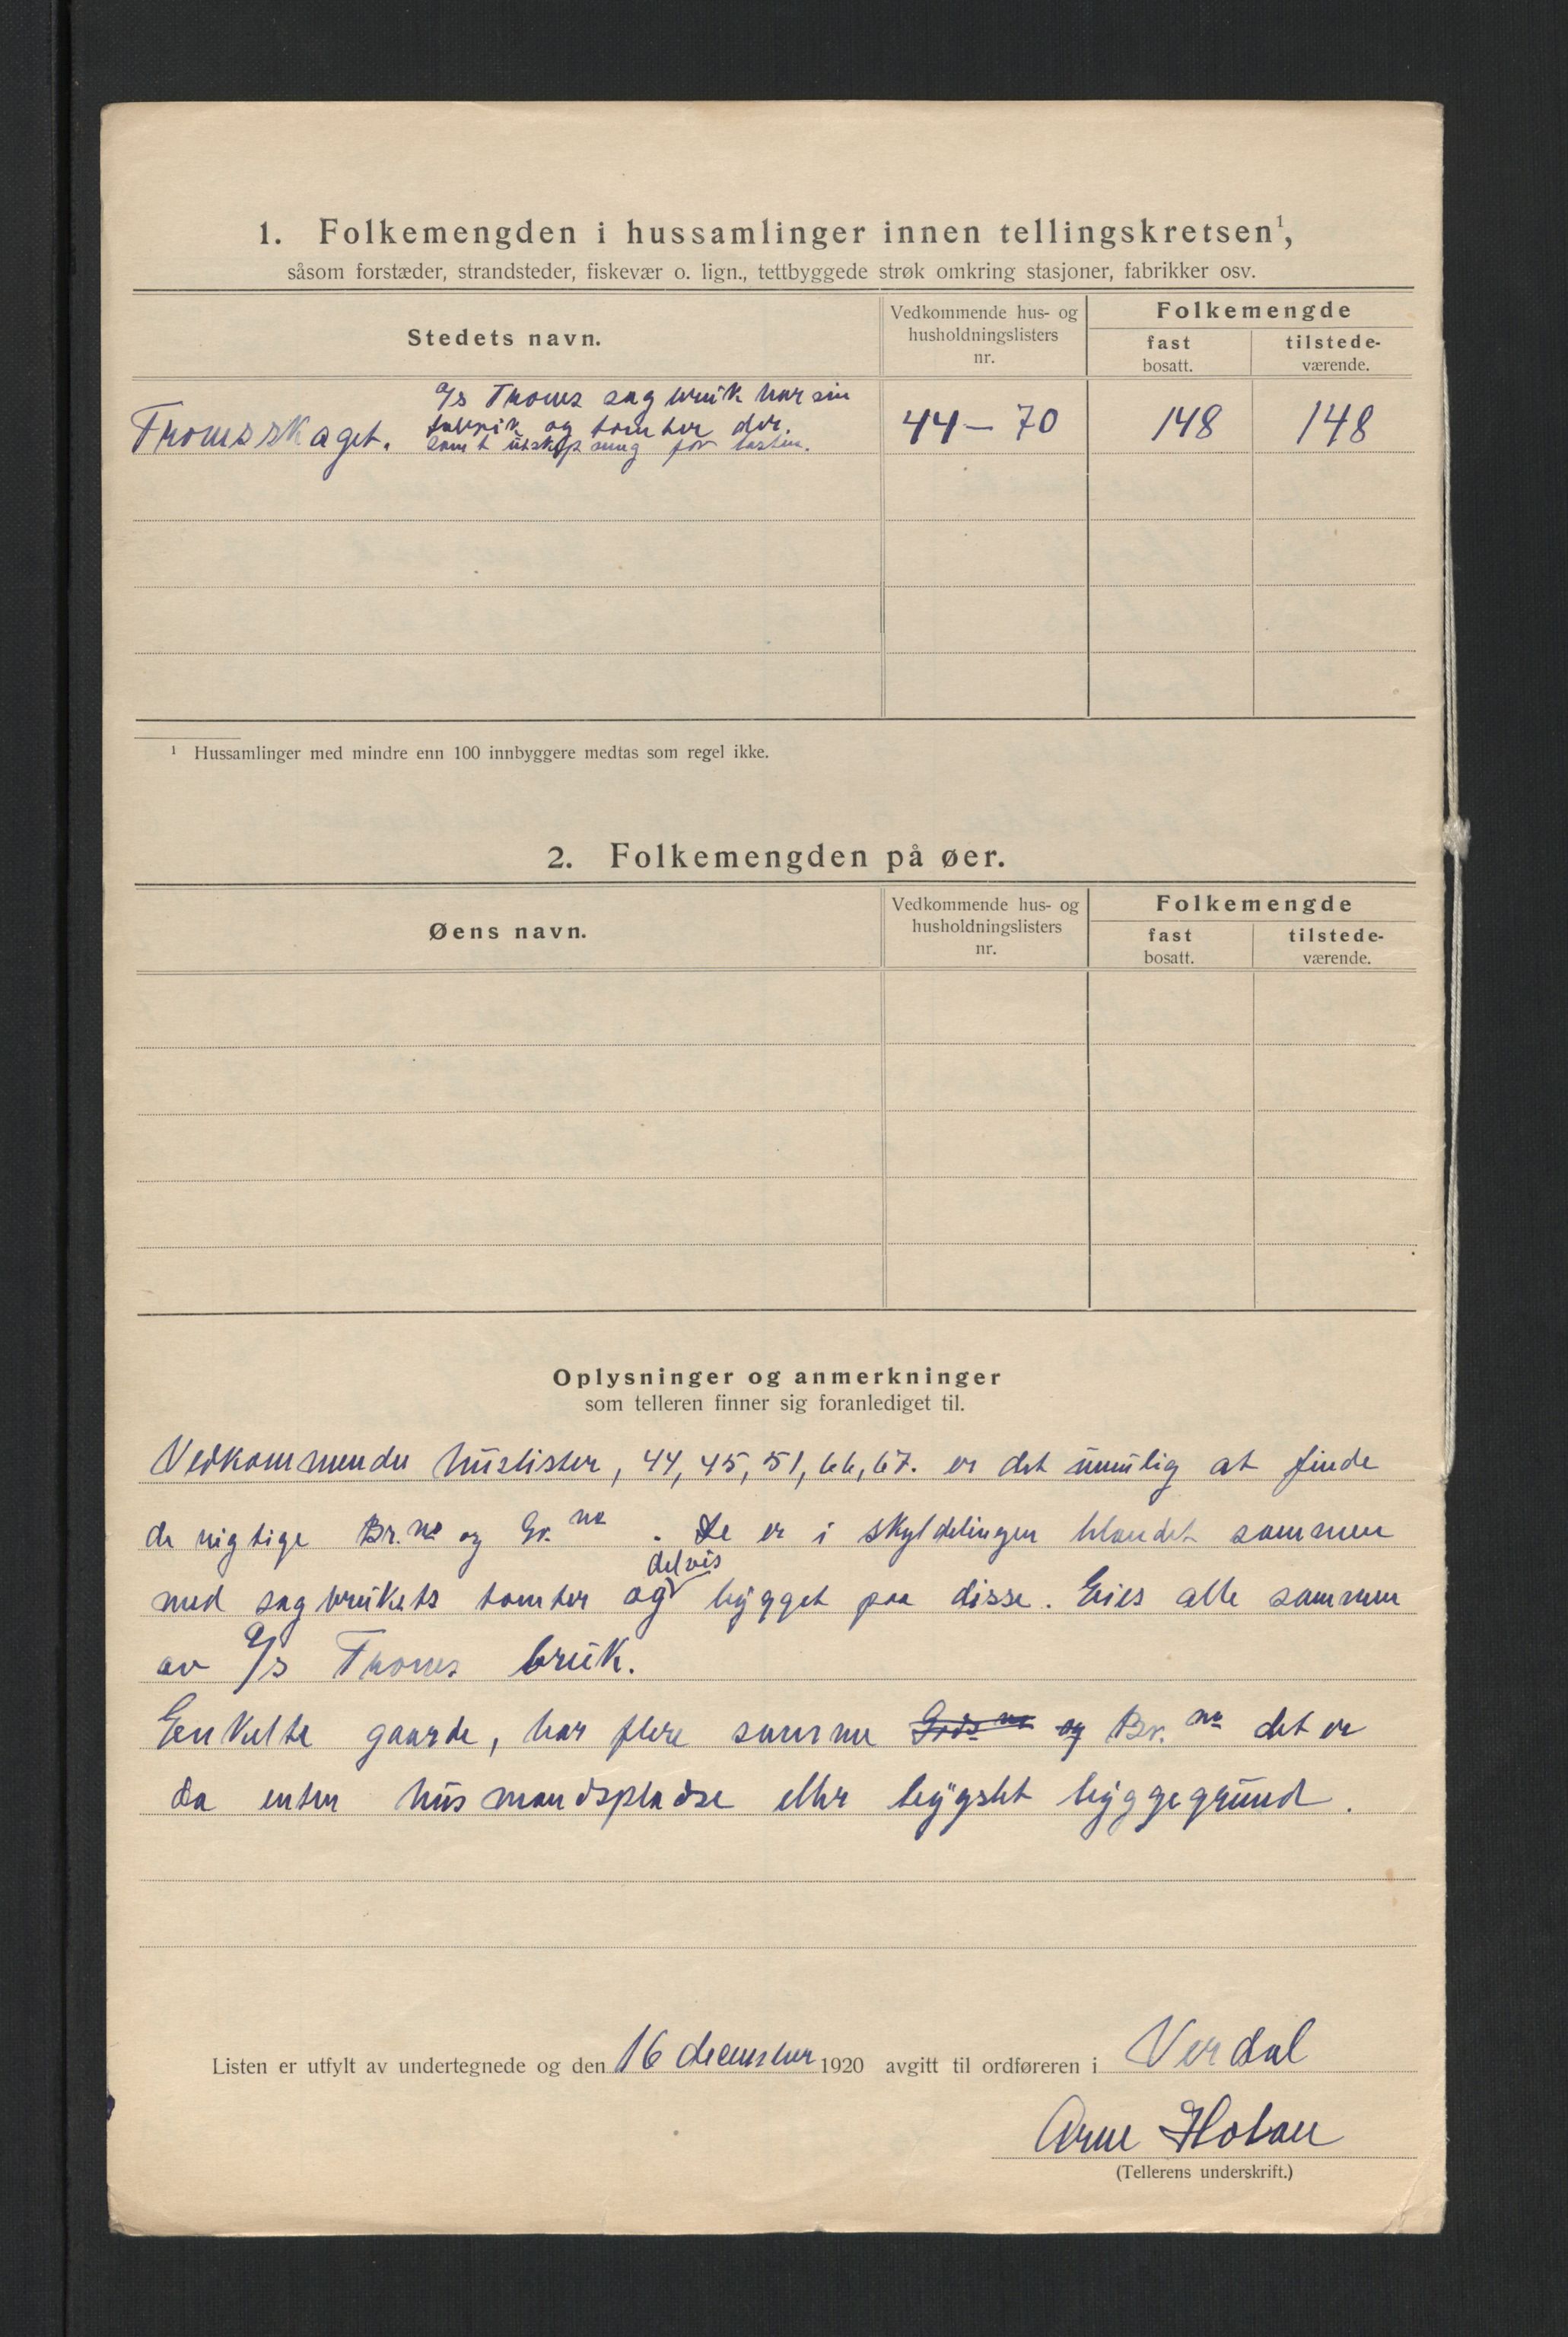 1. Folkemengden i hussamlinger innen tellingskretsen¹,
såsom forstæder, strandsteder, fiskevær o. lign., tettbyggede strøk omkring stasjoner, fabrikker osv.
Stedets navn.
Vedkommende hus- og
husholdningslisters
nr.
Folkemengde
fast
bosatt.
tilstede-
værende.
A/s Trones sagbruk har sin
fabrik og tomter der.
samt utskipning for lasten.
Tronesskaget. 44 – 70 148 148
¹ Hussamlinger med mindre enn 100 innbyggere medtas som regel ikke.
2. Folkemengden på øer.
Øens navn.
Vedkommende hus- og
husholdningslisters
nr.
Folkemengde
fast
bosatt.
tilstede-
værende.
Oplysninger og anmerkninger
som telleren finner sig foranlediget til.
Vedkommende huslister, 44, 45, 51, 66, 67. er det umulig at finde
de rigtige Br. no og Gr. no. De er i skyldelingen blandet sammen
med sagbrukets tomter og delvis bygget paa disse. Eies alle sammen
av A/s Trones bruk.
Enkelte gaarde, har flere samme og Br. no det er
da enten husmandspladse eller bygslet byggegrund.
Listen er utfylt av undertegnede og den 16 december 1920 avgitt til ordføreren i Verdal
Arne Holan
(Tellerens underskrift.)